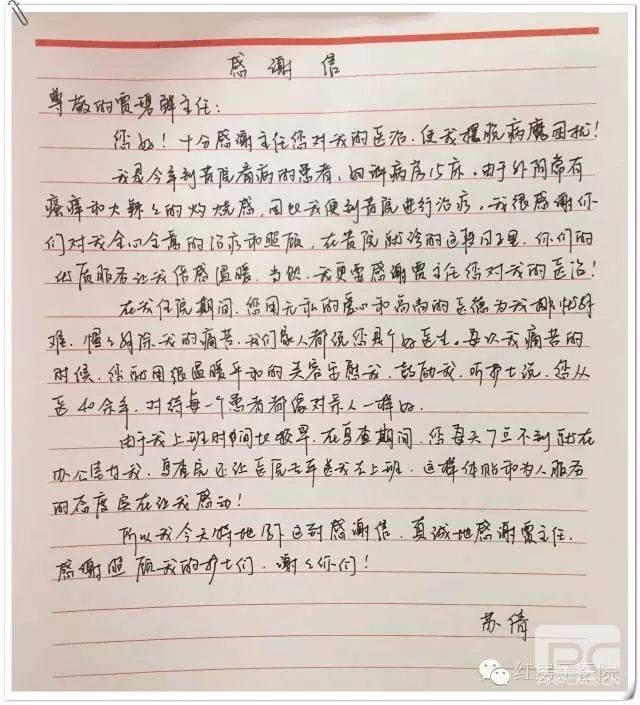 感谢信
尊敬的贾碧鲜主任：
您好！十分感谢主任您对我的医治，使我摆脱病魔困扰！
我是今年到贵院看病的患者，妇科病房15床。由于外阴常有
瘙痒和火辣々的灼烧感，因此我便到贵院进行治疗。我很感谢你
们对我全心全意的治疗和照顾，在贵院就诊的这段日子里，你们的
优质服务让我倍感温暖。当然，我更要感谢贾主任您对我的医治！
在我住院期间，您用无私的爱心和高尚的医德为我排忧解
难，慢々解除我的痛苦。我们家人都说您是个好医生。每次我痛苦的
时候，您都用很温暖平和的笑容安慰我，鼓励我，听护士说，您从
医40余年，对待每一个患者都像对亲人一样好。
由于我上班时间比较早，在复查期间，您每天7点不到就在
办公室等我，复查完还让医院专车送我去上班，这样体贴和为人服务
的态度实在让我感动！
所以我今天特地写下这封感谢信，真诚地感谢贾主任，
感谢照顾我的护士们，谢々你们！
苏倩
红房子医院
PHPCMS.CN